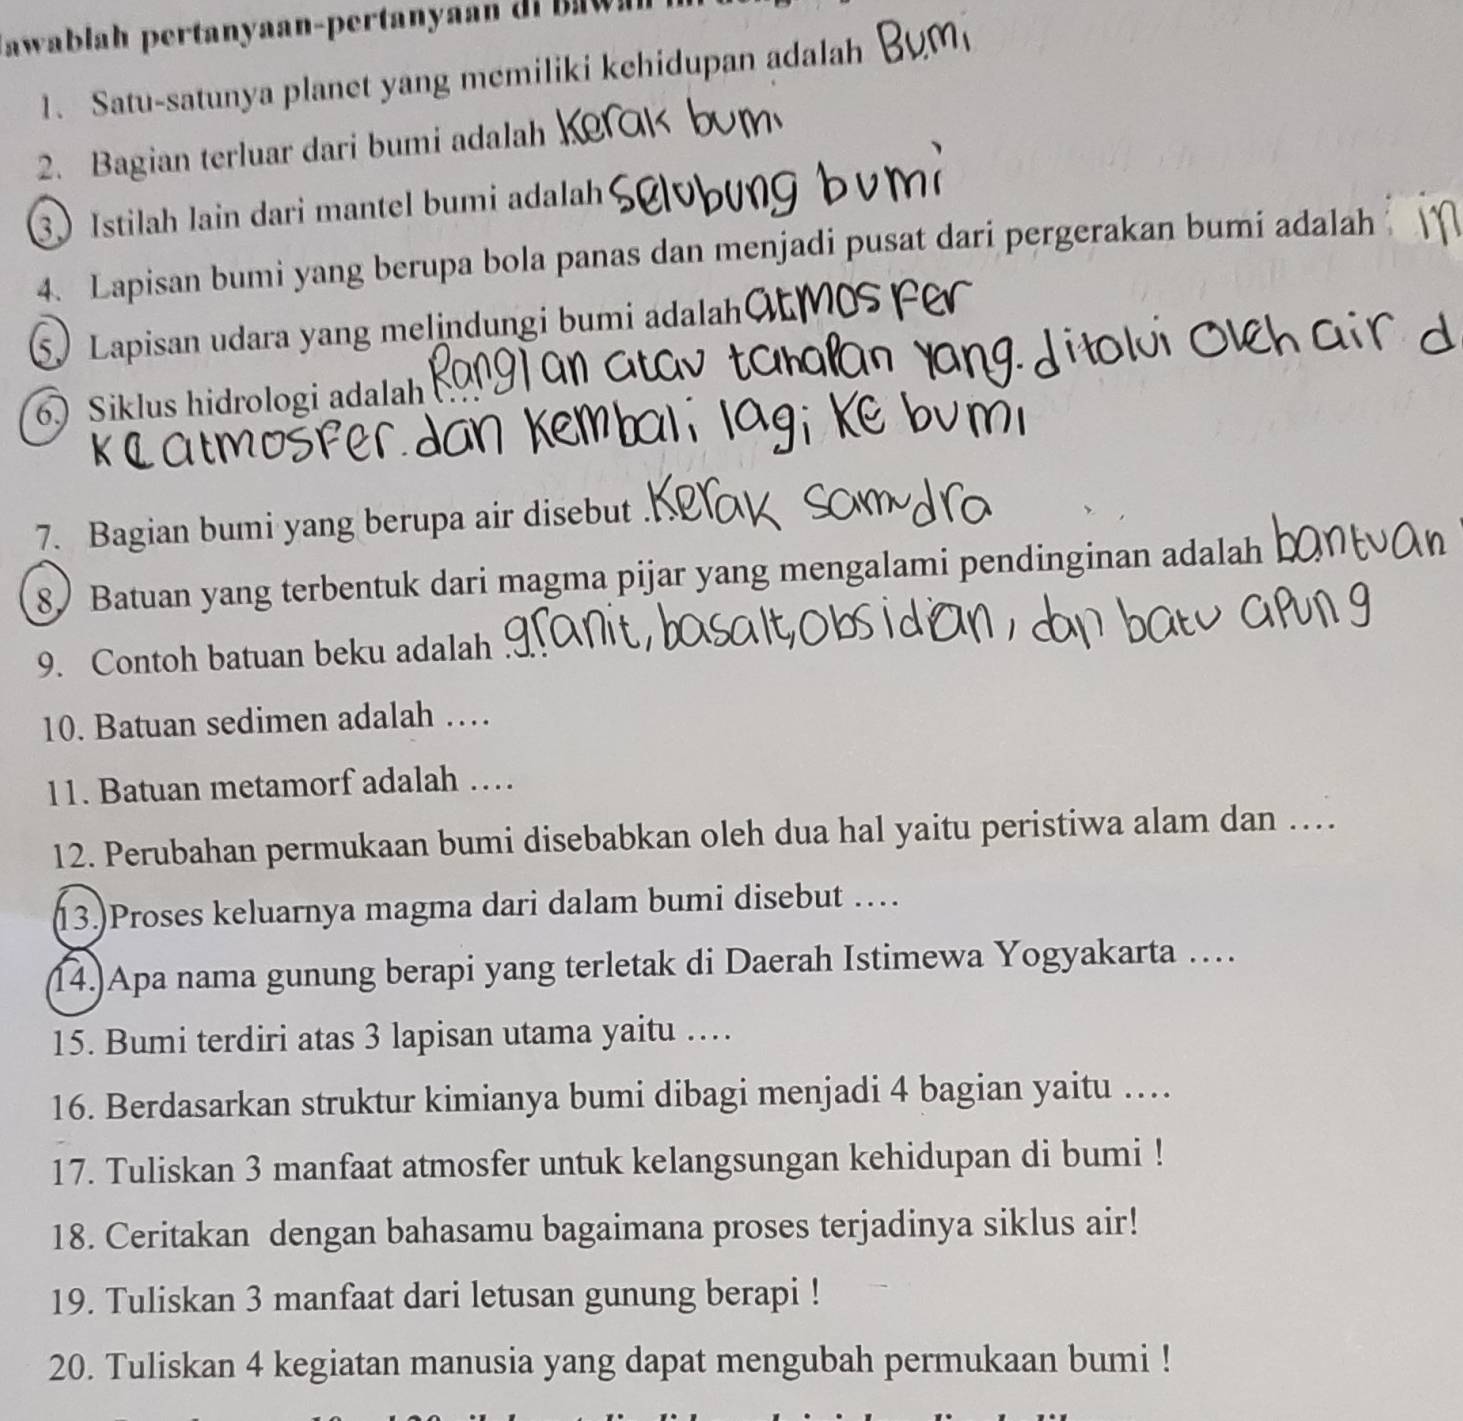 awablah pertanyaan-pertanyaan di
1. Satu-satunya planet yang memiliki kehidupan adalah Bumi
2. Bagian terluar dari bumi adalah Kerak bumi
3. Istilah lain dari mantel bumi adalah Selubung bumi
4. Lapisan bumi yang berupa bola panas dan menjadi pusat dari pergerakan bumi adalah in
5. Lapisan udara yang melindungi bumi adalah atmosfer
6. Siklus hidrologi adalah Rangian atau tahapan yang. ditolui oleh air d
ke atmosfer. dan kembali lagi ke bumi
7. Bagian bumi yang berupa air disebut Kerak samudra
8. Batuan yang terbentuk dari magma pijar yang mengalami pendinginan adalah bantuan
9. Contoh batuan beku adalah granit, basalt, obsidian, dan batu apung
10. Batuan sedimen adalah ....
11. Batuan metamorf adalah ....
12. Perubahan permukaan bumi disebabkan oleh dua hal yaitu peristiwa alam dan ....
13. Proses keluarnya magma dari dalam bumi disebut ....
14. Apa nama gunung berapi yang terletak di Daerah Istimewa Yogyakarta ....
15. Bumi terdiri atas 3 lapisan utama yaitu ....
16. Berdasarkan struktur kimianya bumi dibagi menjadi 4 bagian yaitu ....
17. Tuliskan 3 manfaat atmosfer untuk kelangsungan kehidupan di bumi !
18. Ceritakan dengan bahasamu bagaimana proses terjadinya siklus air!
19. Tuliskan 3 manfaat dari letusan gunung berapi !
20. Tuliskan 4 kegiatan manusia yang dapat mengubah permukaan bumi !